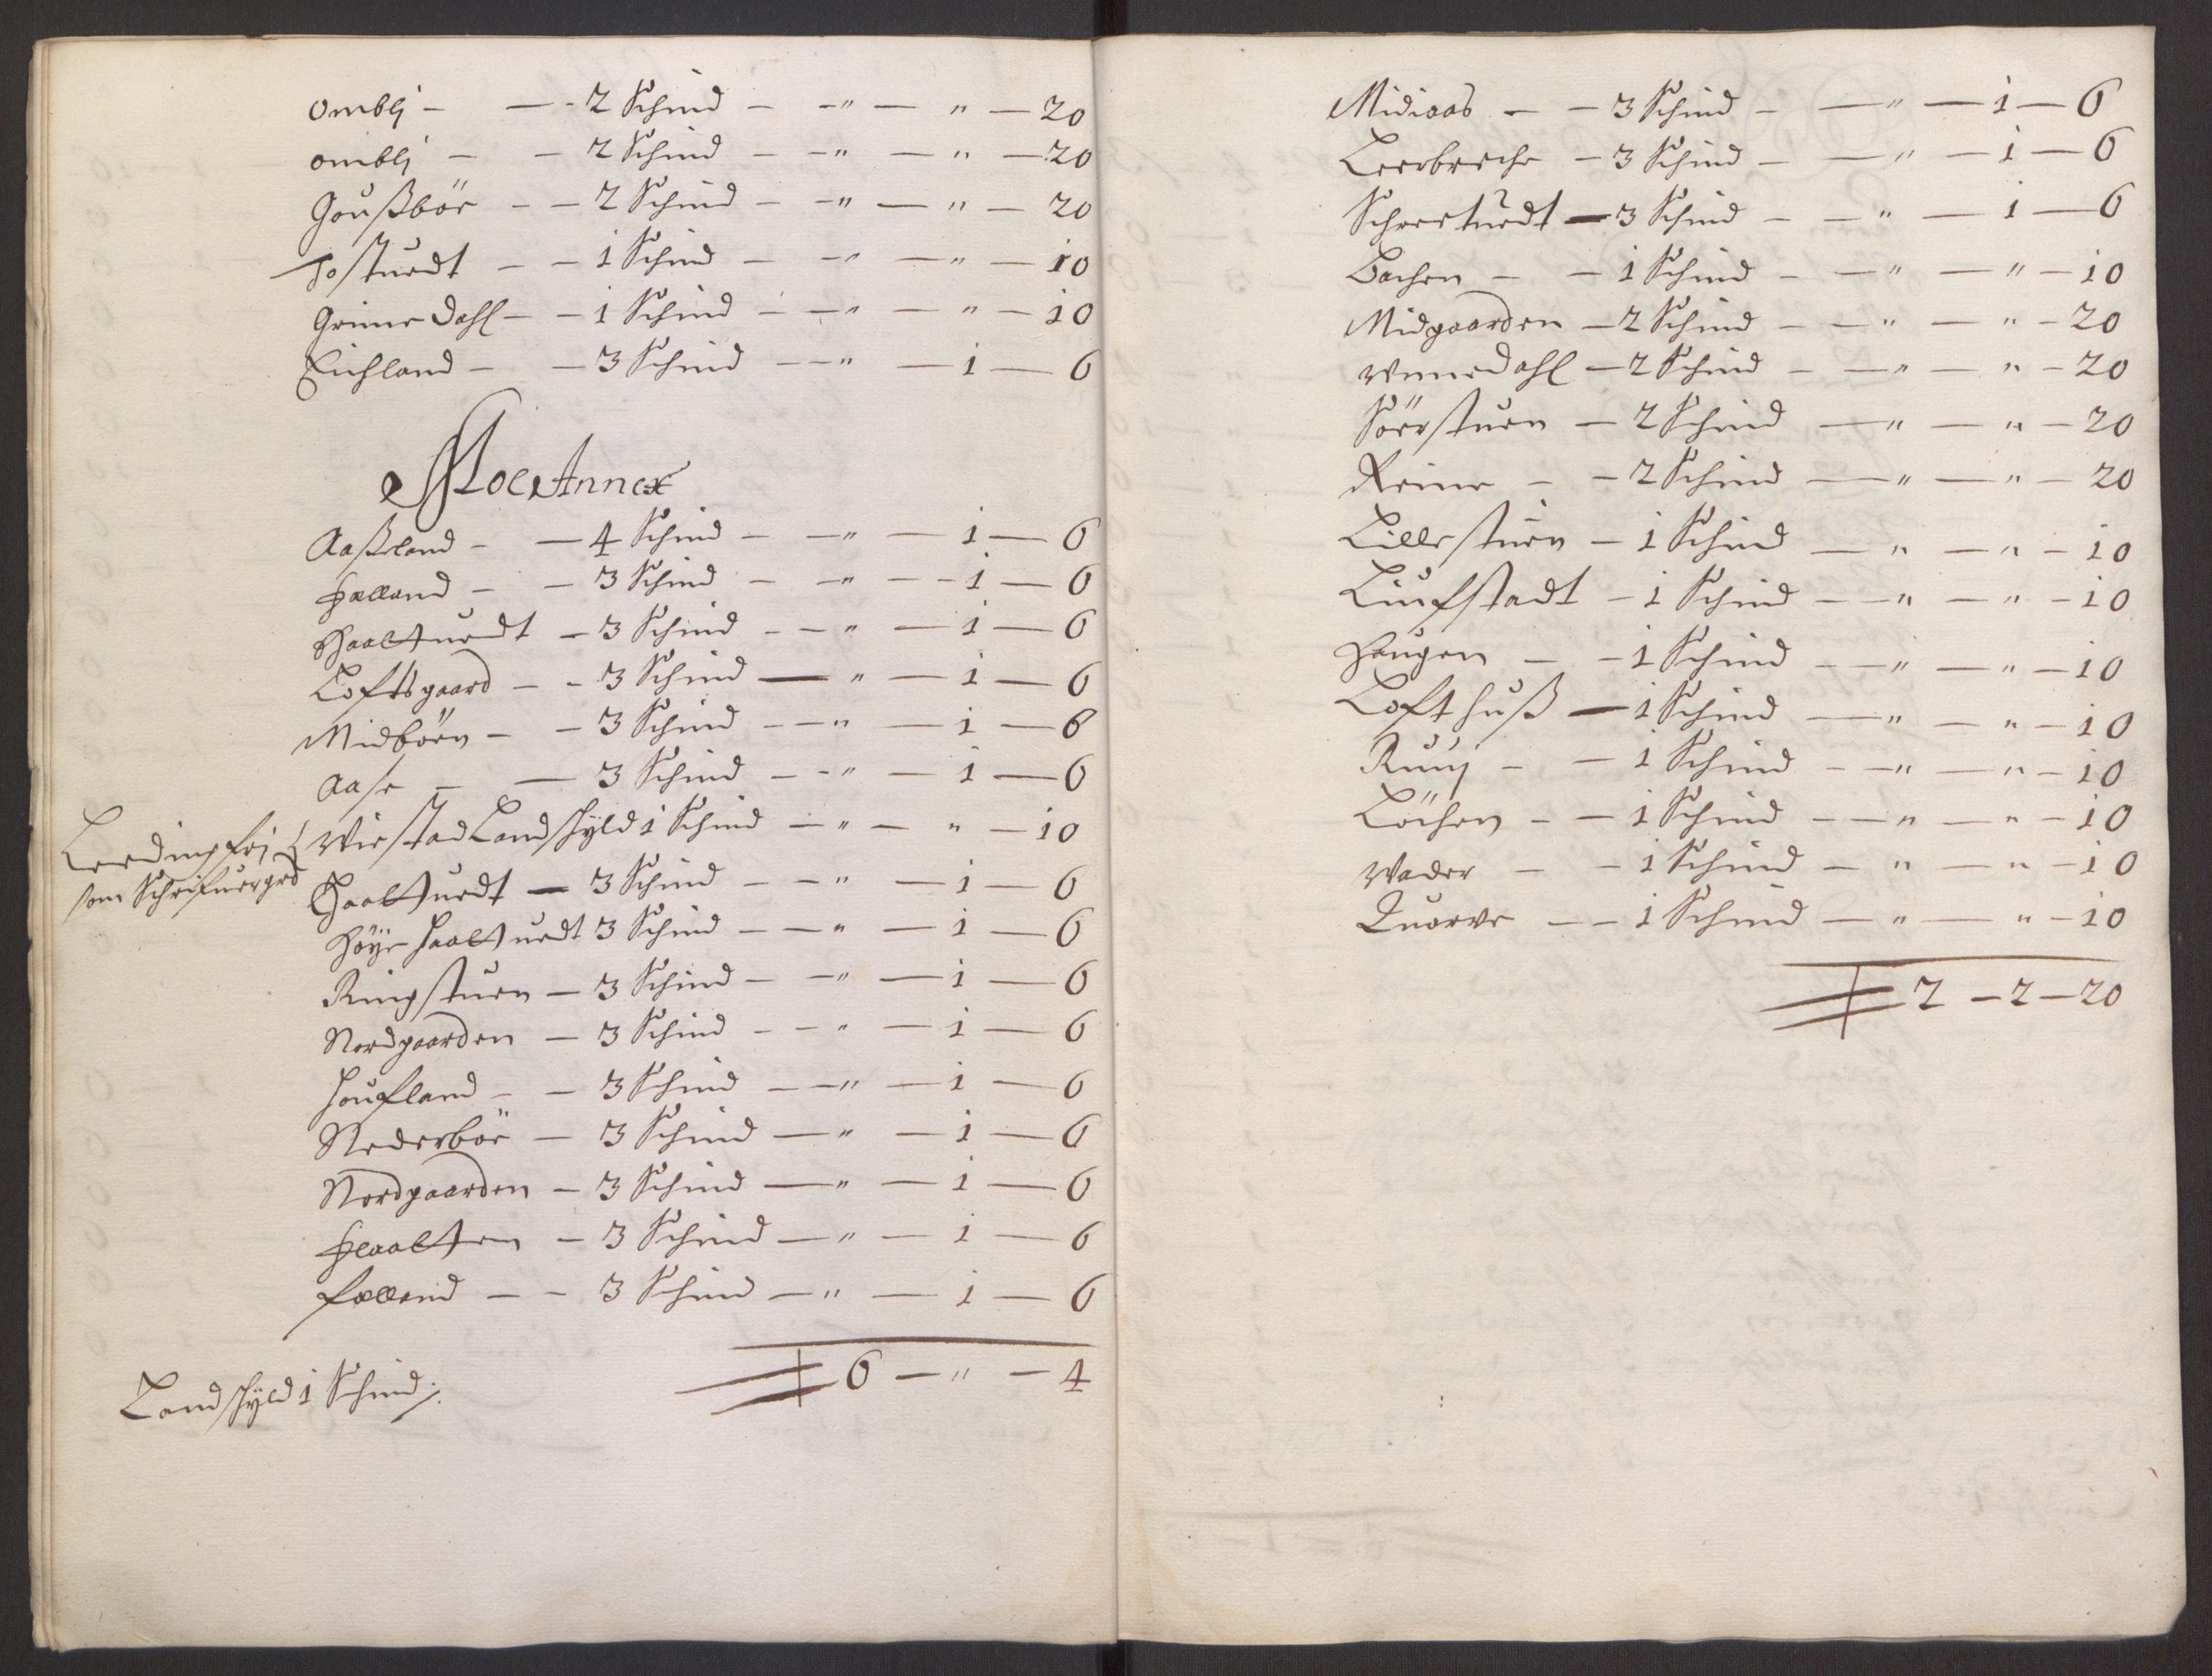 Ombli - - 2 Schind - - " - " - 20
ombli - - 2 Schind - - " - " - 20
Goußböe - - 2 Schind - - " - " - 20
Tostuedt - - 1 Schind - - " - " - 10
Grimedahl - - 1 Schind - - " - " - 10
Eichland - - 3 Schind - - " - 1 - 6
Moe Annex
Aaßland - - 4 Schind - - " - 1 - 6
Hælland - - 3 Schind - - " - 1 - 6
Haaltuedt - 3 Schind - - " - 1 - 6
Loftsgaard - - 3 Schind - " - 1 - 6
Midböen - - 3 Schind - - " - 1 - 6
Aase - - 3 Schind - - " - 1 - 6
Leedingfri
Wiestad Landschyld 1 Schind - " - " - 10
som
Haaltuedt - 3 Schind - - " - 1 - 6
Höye haaltuedt 3 Schind - - " - 1 - 6
Ringstuen - 3 Schind - - " - 1 - 6
Nordgaarden - 3 Schind - - " - 1 - 6
Houfland - - 3 Schind - - " - 1 - 6
Nederböe - 3 Schind - " - 1 - 6
Nordgaarden - 3 Schind - " - 1 - 6
3 Schind - " - 1 - 6
fælland - - 3 Schind - " - 1 - 6
6 - " - 4
Landschyld 1 Schind
Midiaas - - 3 Schind - - " - 1 - 6
Leerbreche - 3 Schind - - " - 1 - 6
Schreetuedt - 3 Schind - - " - 1 - 6
Bachen - - 1 Schind - - " - " - 10
Midgaarden - 2 Schind - - " - " - 20
Winnedahl - 2 Schind - - " - " - 20
Söerstuen - 2 Schind - " - " - 20
Reime - - 2 Schind - " - " - 20
Lillestuen - 1 Schind - " - " - 10
Liufstadt - 1 Schind - - " - " - 10
Haugen - - 1 Schind - - " - " - 10
Lofthuß - 1 Schind - " - " - 10
Ruuj - - 1 Schind - - " - " - 10
Löchen - - 1 Schind - - " - " - 10
Wader - - 1 Schind - " - " - 10
Quarve - - 1 Schind - " - " - 10
2 - 2 - 20